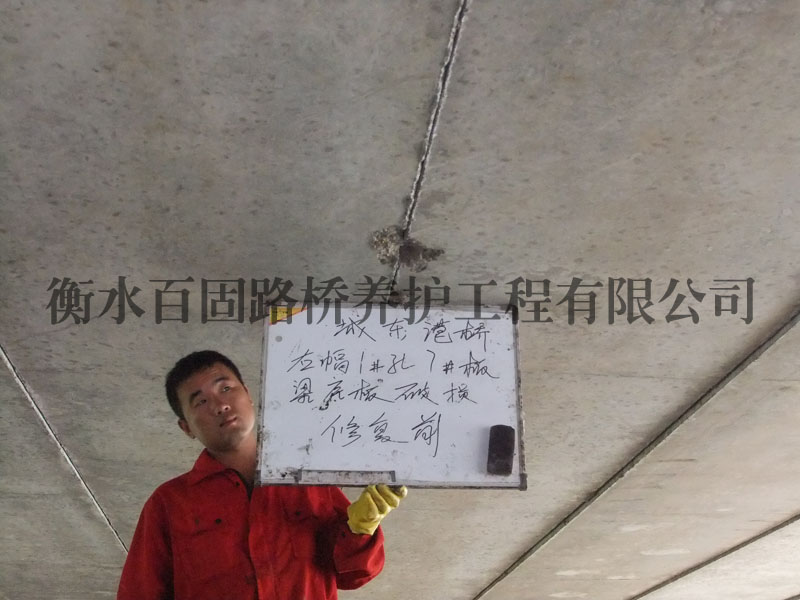 衡水百固路桥养护工程有限公司
城东港桥
左幅1#孔7#板
梁底板破损
修复前